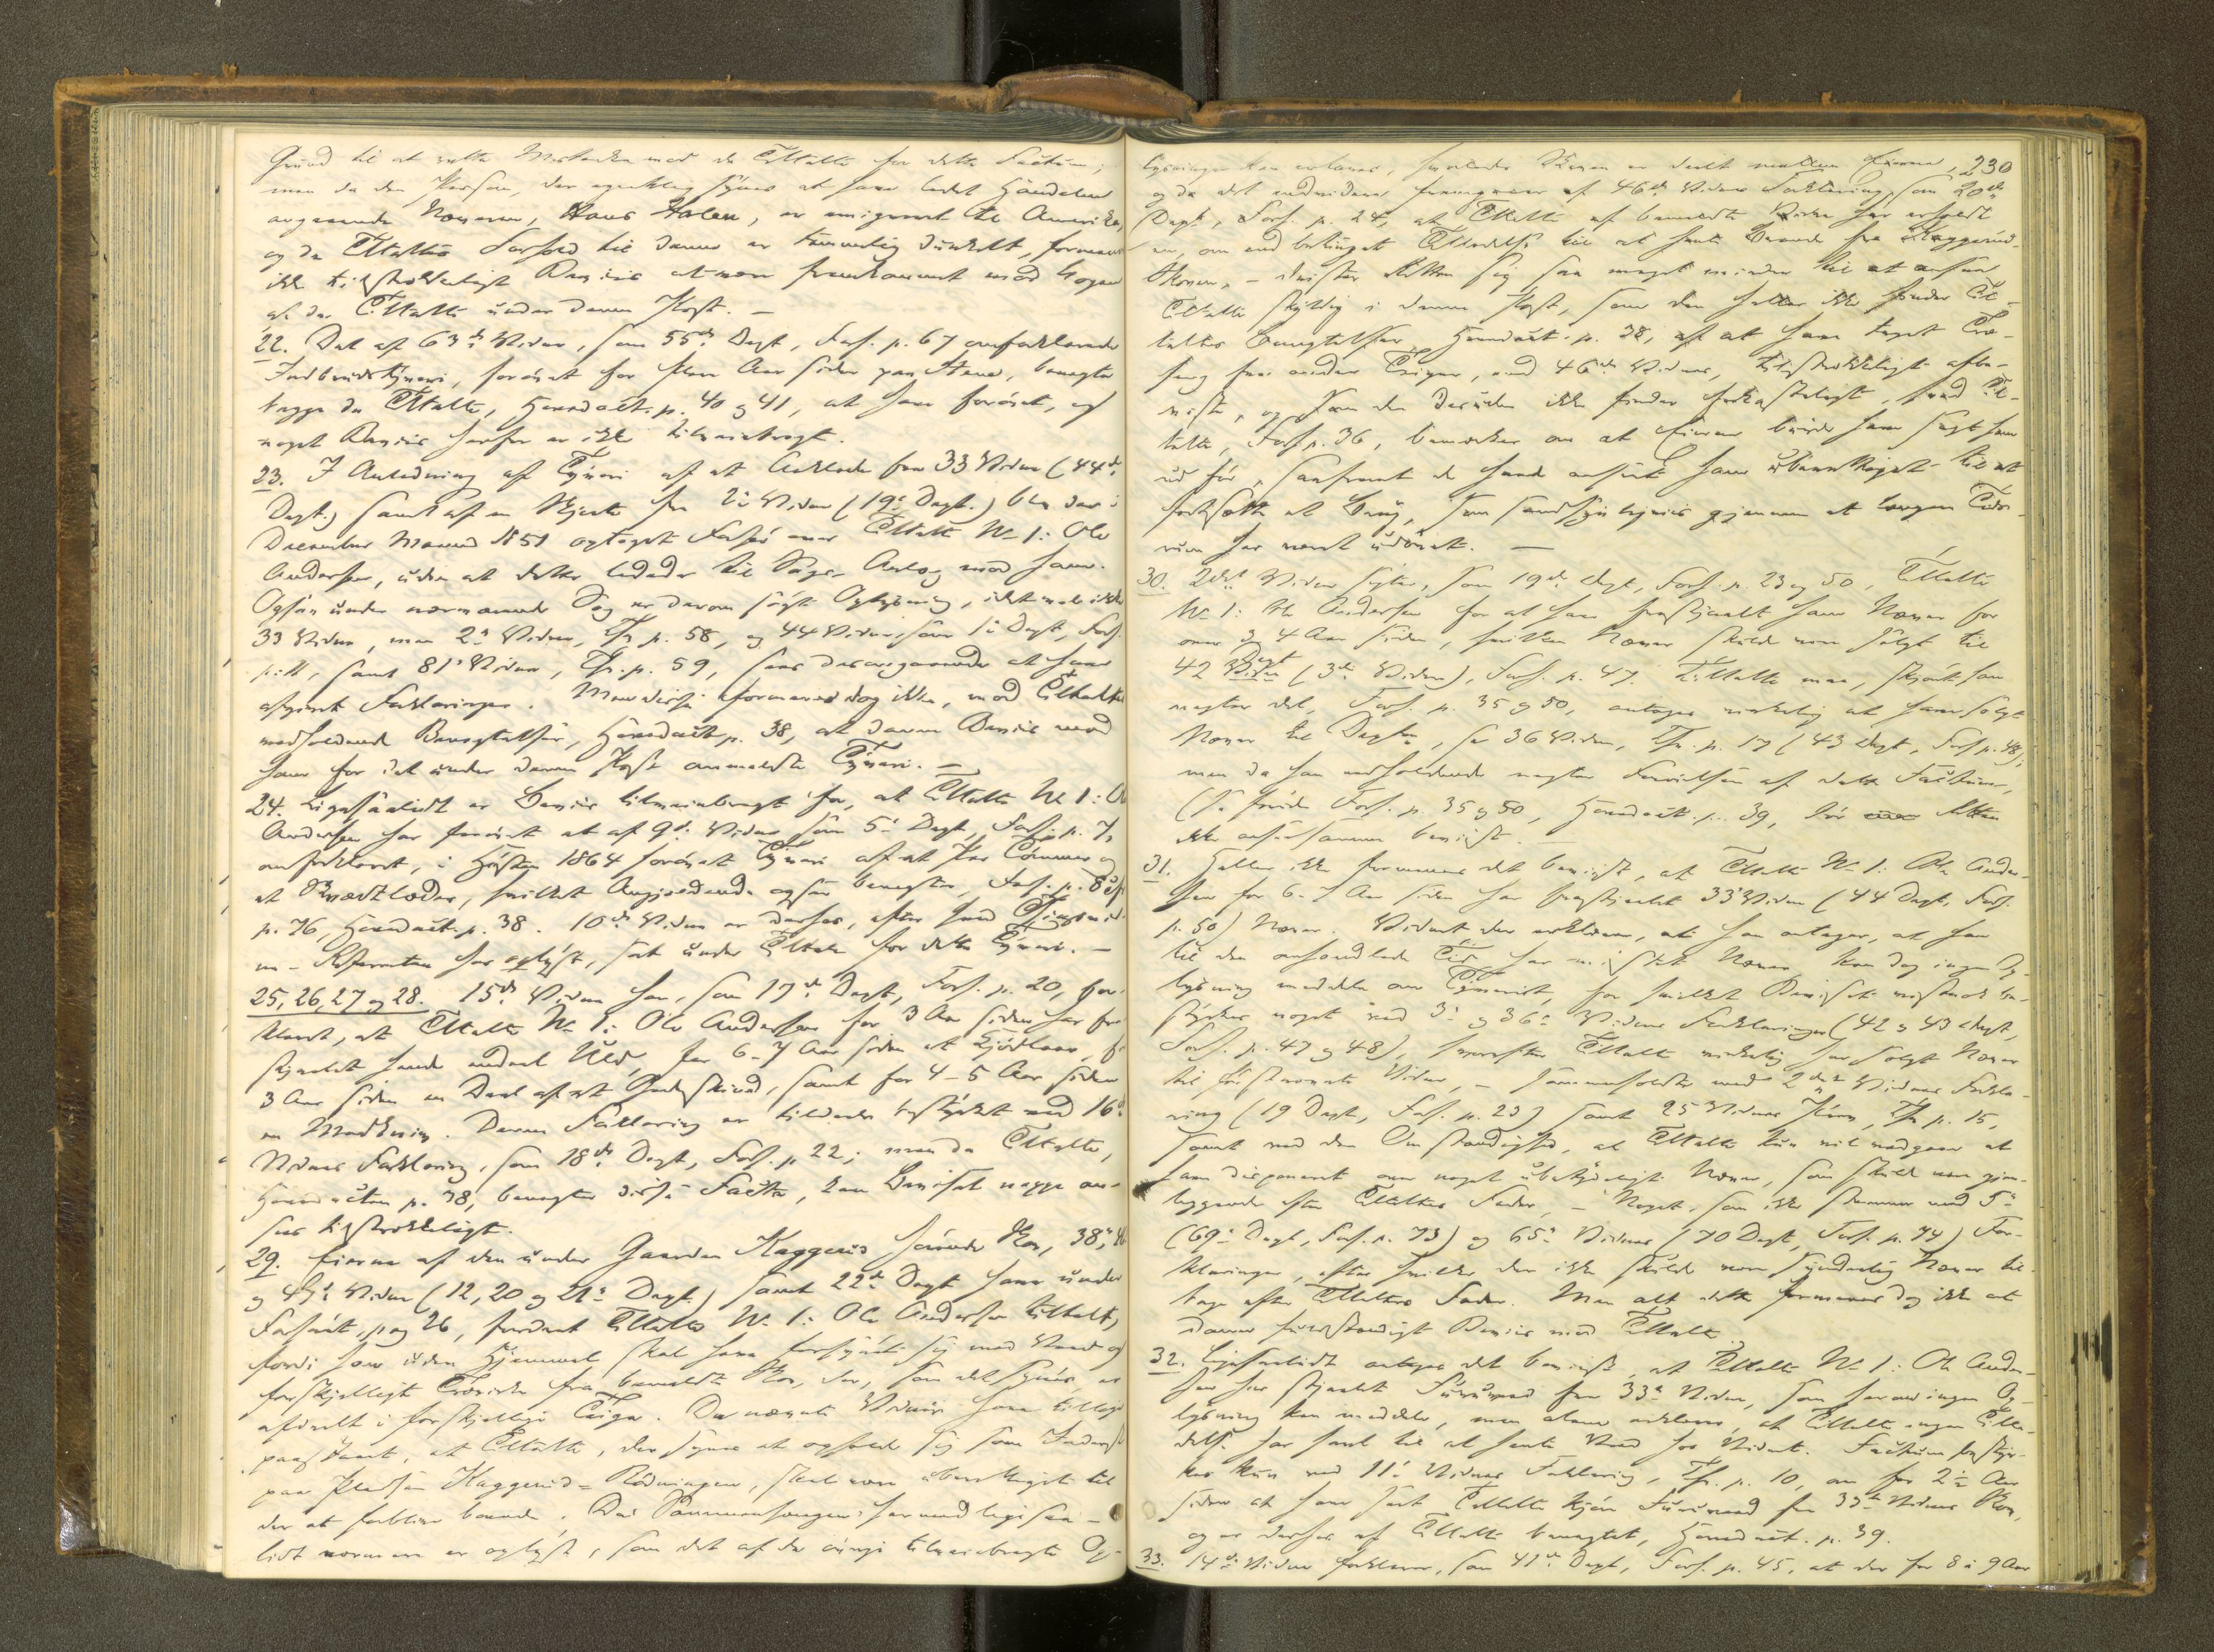 Grund til at rette Mistanken mod de Tiltalte for dette Factum;
men da den Person, der egentlig synes at have ledet Handelen
angaaende Næveren, Hans Holen, er emigreret til Amerika,
og da Tiltaltes Forhold til denne er temmelig dunkelt, formenes
ikke tilstrækkeligt Beviis at være fremkommet mod Nogen
af de Tiltalte under denne Post. —
22. Det af 63de Vidne, som 55de Dept, Forh. p. 67 omforklarede
Indbrudstyveri, forøvet for flere Aar siden paa, benegte
begge de Tiltalte, Hovedact. p. 40 og 41, at have forøvet, og
noget Beviis herfor er ikke tilveiebragt.
23. I Anledning af Tyveri af et fra 33 Vidne (44de
Dept.) samt af en Skjorte fra 2det Vidne (19de Dept.) blev der i
December Maaned 1851 optaget Forhør over Tiltalte No 1: Ole
Andersen, uden at dette ledede til Sags Anlæg mod ham.
Ogsaa under nærværende Sag er derom søgt Oplysning, idetmindste
33 Vidne, men 2det Vidne, Th. p. 58, og 44 Vidne, som 1ste Dept, Forh.
p. 11, samt 81de Vidne, Th. p. 59, have desangaaende at have
afgivet Forklaringer. Men disse formenes dog ikke, mod Tiltaltes
vedholdende Benegtelser, Hovedact p. 38, at danne Beviis mod
ham for det under denne Post anmeldte Tyveri. —
24. Ligesaalidt er Beviis tilveiebragt for, at Tiltalte No 1: Ole
Andersen har forøvet et af 9de Vidne som 5te Dept, Forh. p. 7,
omforklaret, i Høsten 1864 forøvet Tyveri af et Par Tømmer og
et, hvilket Angjældende ogsaa benegter, Forh. p. 8 og
p. 76, Hovedact p. 38. 10de Vidne er derhos, efter hvad
Referenten har oplyst, sat under Tiltale for dette Tyveri. —
25, 26, 27 og 28. 15de Vidne har, som 17de Dept, Forh. p. 20, for-
klaret, at Tiltalte No 1: Ole Andersen for 3 Aar siden har fra-
stjaalet hende endeel Uld, for 6-7 Aar siden et Kjødlaar, for
3 Aar siden en Deel af et Gjedeskind, samt for 4-5 Aar siden
en. Denne Forklaring er tildeels bestyrket ved 16de
Vidnes Forklaring, som 18de Dept, Forh. p. 22; men da Tiltalte,
Hovedacten p. 38, benegter disse Facta, kan Beviset neppe an-
sees tilstrækkeligt.
29. Eierne af den under Gaarden Kaggerud hørende Skov, 38te, 46
og 47de Vidne (12, 20 og 21de Dept.) samt 22de Dept have under
Forhøret, pag 26, fordret Tiltalte No 1: Ole Andersen tiltalt,
fordi han uden Hjemmel skal have forsynet sig med Veed og
forskjelligt Trævirke fra bemeldte Skov, der, som det synes, er
afdeelt i forskjellige Teiger. De nævnte Vidner have tillige
paastaaet, at Tiltalte, der synes at opholde sig som Inderst
paa Pladsen Kaggerud-Rødningen, skal være uberettiget til
der at forblive boende. Da Sammenhængen hermed ligesaa-
lidt nærmere er oplyst, som det af de øvrige tilveiebragte Op-
lysninger kan erfares, hvorledes Skoven er deelt mellem Eierne, 230
og da det endvidere fremgaaer af 46de Vidnes Forklaring, som 20de
Dept, Forh. p. 24, at Tiltalte af bemeldte Vidne har erholdt
en, om end betinget Tilladelse til at hente Brænde fra Kaggerud-
skoven, – drister Retten sig saa meget mindre til at ansee
Tiltalte skyldig i denne Post, som den heller ikke finder Til-
taltes Benegtelser, Hovedact. p. 38, af at have taget Træ-
fang fra andre Teiger, end 46de Vidnes, tilstrækkeligt afbe-
viste, og som den desuden ikke finder forkasteligt, hvad Til-
talte, Forh. p. 36, bemærker om at Eierne burde have sagt ham
ud før, saafremt de havde anseet ham uberettiget til at
fortsætte et Brug, som sandsynligviis gjennem et længere Tids-
rum har været udøvet. —
30. 2det Vidne sigter, som 19de Dept, Forh. p. 23 og 50, Tiltalte
No 1: Ole Andersen for at have frastjaalet ham Næver for
over 3 a 4 Aar siden, hvilken Næver skulde være solgt til
42 Dept (3de Vidne), Forh. p. 47. Tiltalte maa, skjønt han
negter det, Forh. p. 35 og 50, antages virkelig at have solgt
Næver til Depten, see 36 Vidne, Th. p. 17 (43 Dept, Forh. p. 48);
men da han vedholdende negter Forøvelsen af dette Factum,
Forh. p. 35 og 50, Hovedact. p. 39, tør Retten
ikke ansee samme beviist. —
31. Heller ikke formenes det beviist, at Tiltalte No 1: Ole Ander-
sen for 6-7 Aar siden har frastjaalet 33te Vidne (44 Dept, Forh.
p. 50) Næver. Vidnet der erklærer, at han antager, at han
til den omhandlede Tid har mistet Næver, kan dog ingen Op-
lysning meddele om Tyveriet, for hvilket Beviset vistnok be-
styrkes noget ved 3de og 36te Vidnes Forklaringer (42 og 43 Dept,
Forh. p. 47 og 48), hvorefter Tiltalte virkelig har solgt Næver
til førstnævnte Vidne, – sammenholdte med 2det Vidnes Forkla-
ring (19 Dept, Forh. p. 23) samt 25 Vidnes, Th. p. 15,
samt med den Omstændighed, at Tiltalte kun vil vedgaae at
have disponeret over noget ubetydeligt Næver, som skulde være gjen-
liggende efter Tiltaltes Fader, – Noget, som ikke stemmer med 5te
(69de Dept, Forh. p. 73) og 65de Vidnes (70 Dept, Forh. p. 74) For-
klaringer, efter hvilke der ikke skulde være synderlig Næver til-
bage efter Tiltaltes Fader. Men alt dette formenes dog ikke at
danne fuldstændigt Beviis mod Tiltalte.
32. Ligesaalidt antages det beviist, at Tiltalte No 1: Ole Ander-
sen har stjaalet Furuveed fra 33te Vidne, som herom ingen Op-
lysning kan meddele, men alene erklærer, at Tiltalte ingen Tilla-
delse har havt til at hente Veed hos Vidnet. Factum bestyr-
kes kun ved 11te Vidnes Forklaring, Th. p. 10, om for 2½ Aar
siden at have seet Tiltalte kjøre Furuveed fra 33te Vidnes Skov,
og er derhos af Tiltalte benegtet, Hovedact. p. 39.
33. 14de Vidne forklarer, som 41de Dept, Forh. p. 45, at der for 8 a 9 Aar